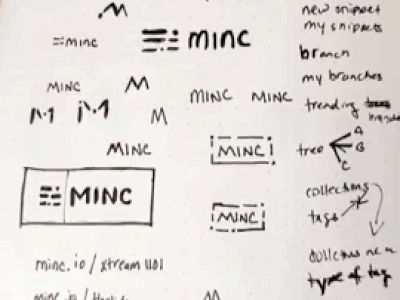 .M
new snippet
my snippets
minc
minc
branch
my branches
MINC
M
MINC
MINC
trending
M
MINC
MINC
tree
A
B
C
MINC
collections
tags
MINC
minc.io/xtream1101
type of tag
minc.io/
M